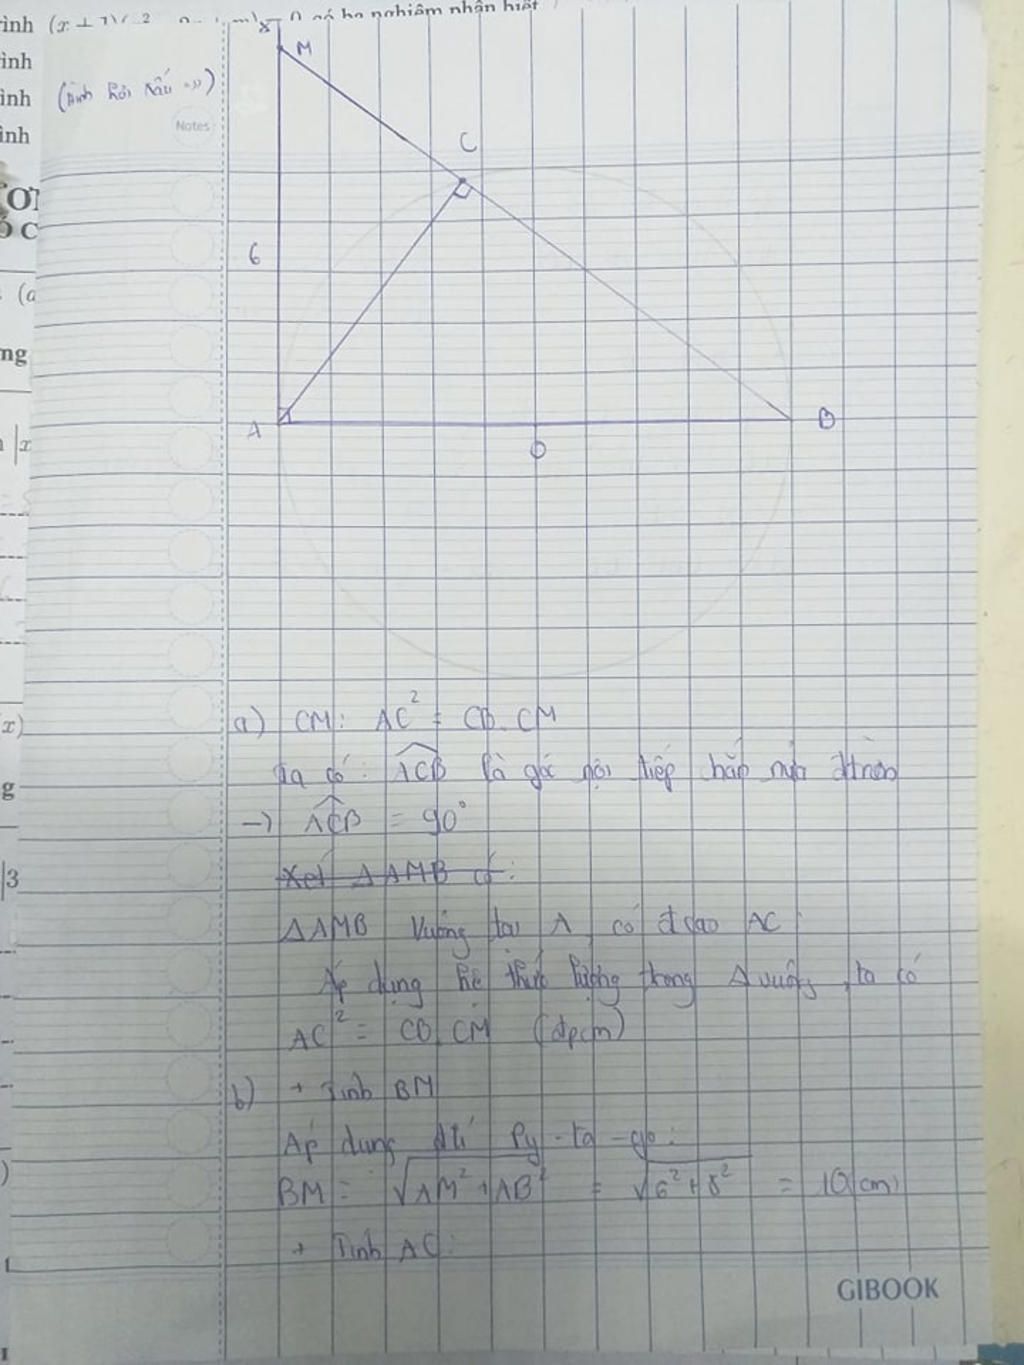 rình (x + 1)(x² có ba nghiệm phân biệt
rình
ình (Hình hơi xấu =))
ình
Notes
x
M
C
6
A
B
O
ng
a) CM: AC² = CB.CM
Ta có: ACB là góc nội tiếp chắn nửa đtròn
→ ACB = 90°
Xét ΔAMB có:
ΔAMB vuông tại A, có đ cao AC
Áp dụng hệ thức lượng trong Δ vuông, ta có
AC² = CB.CM (đpcm)
b) + Tính BM
Áp dụng đlí Py-ta-go:
BM = √AM² + AB² = √6² + 8² = 10(cm)
+ Tính AC:
GIBOOK